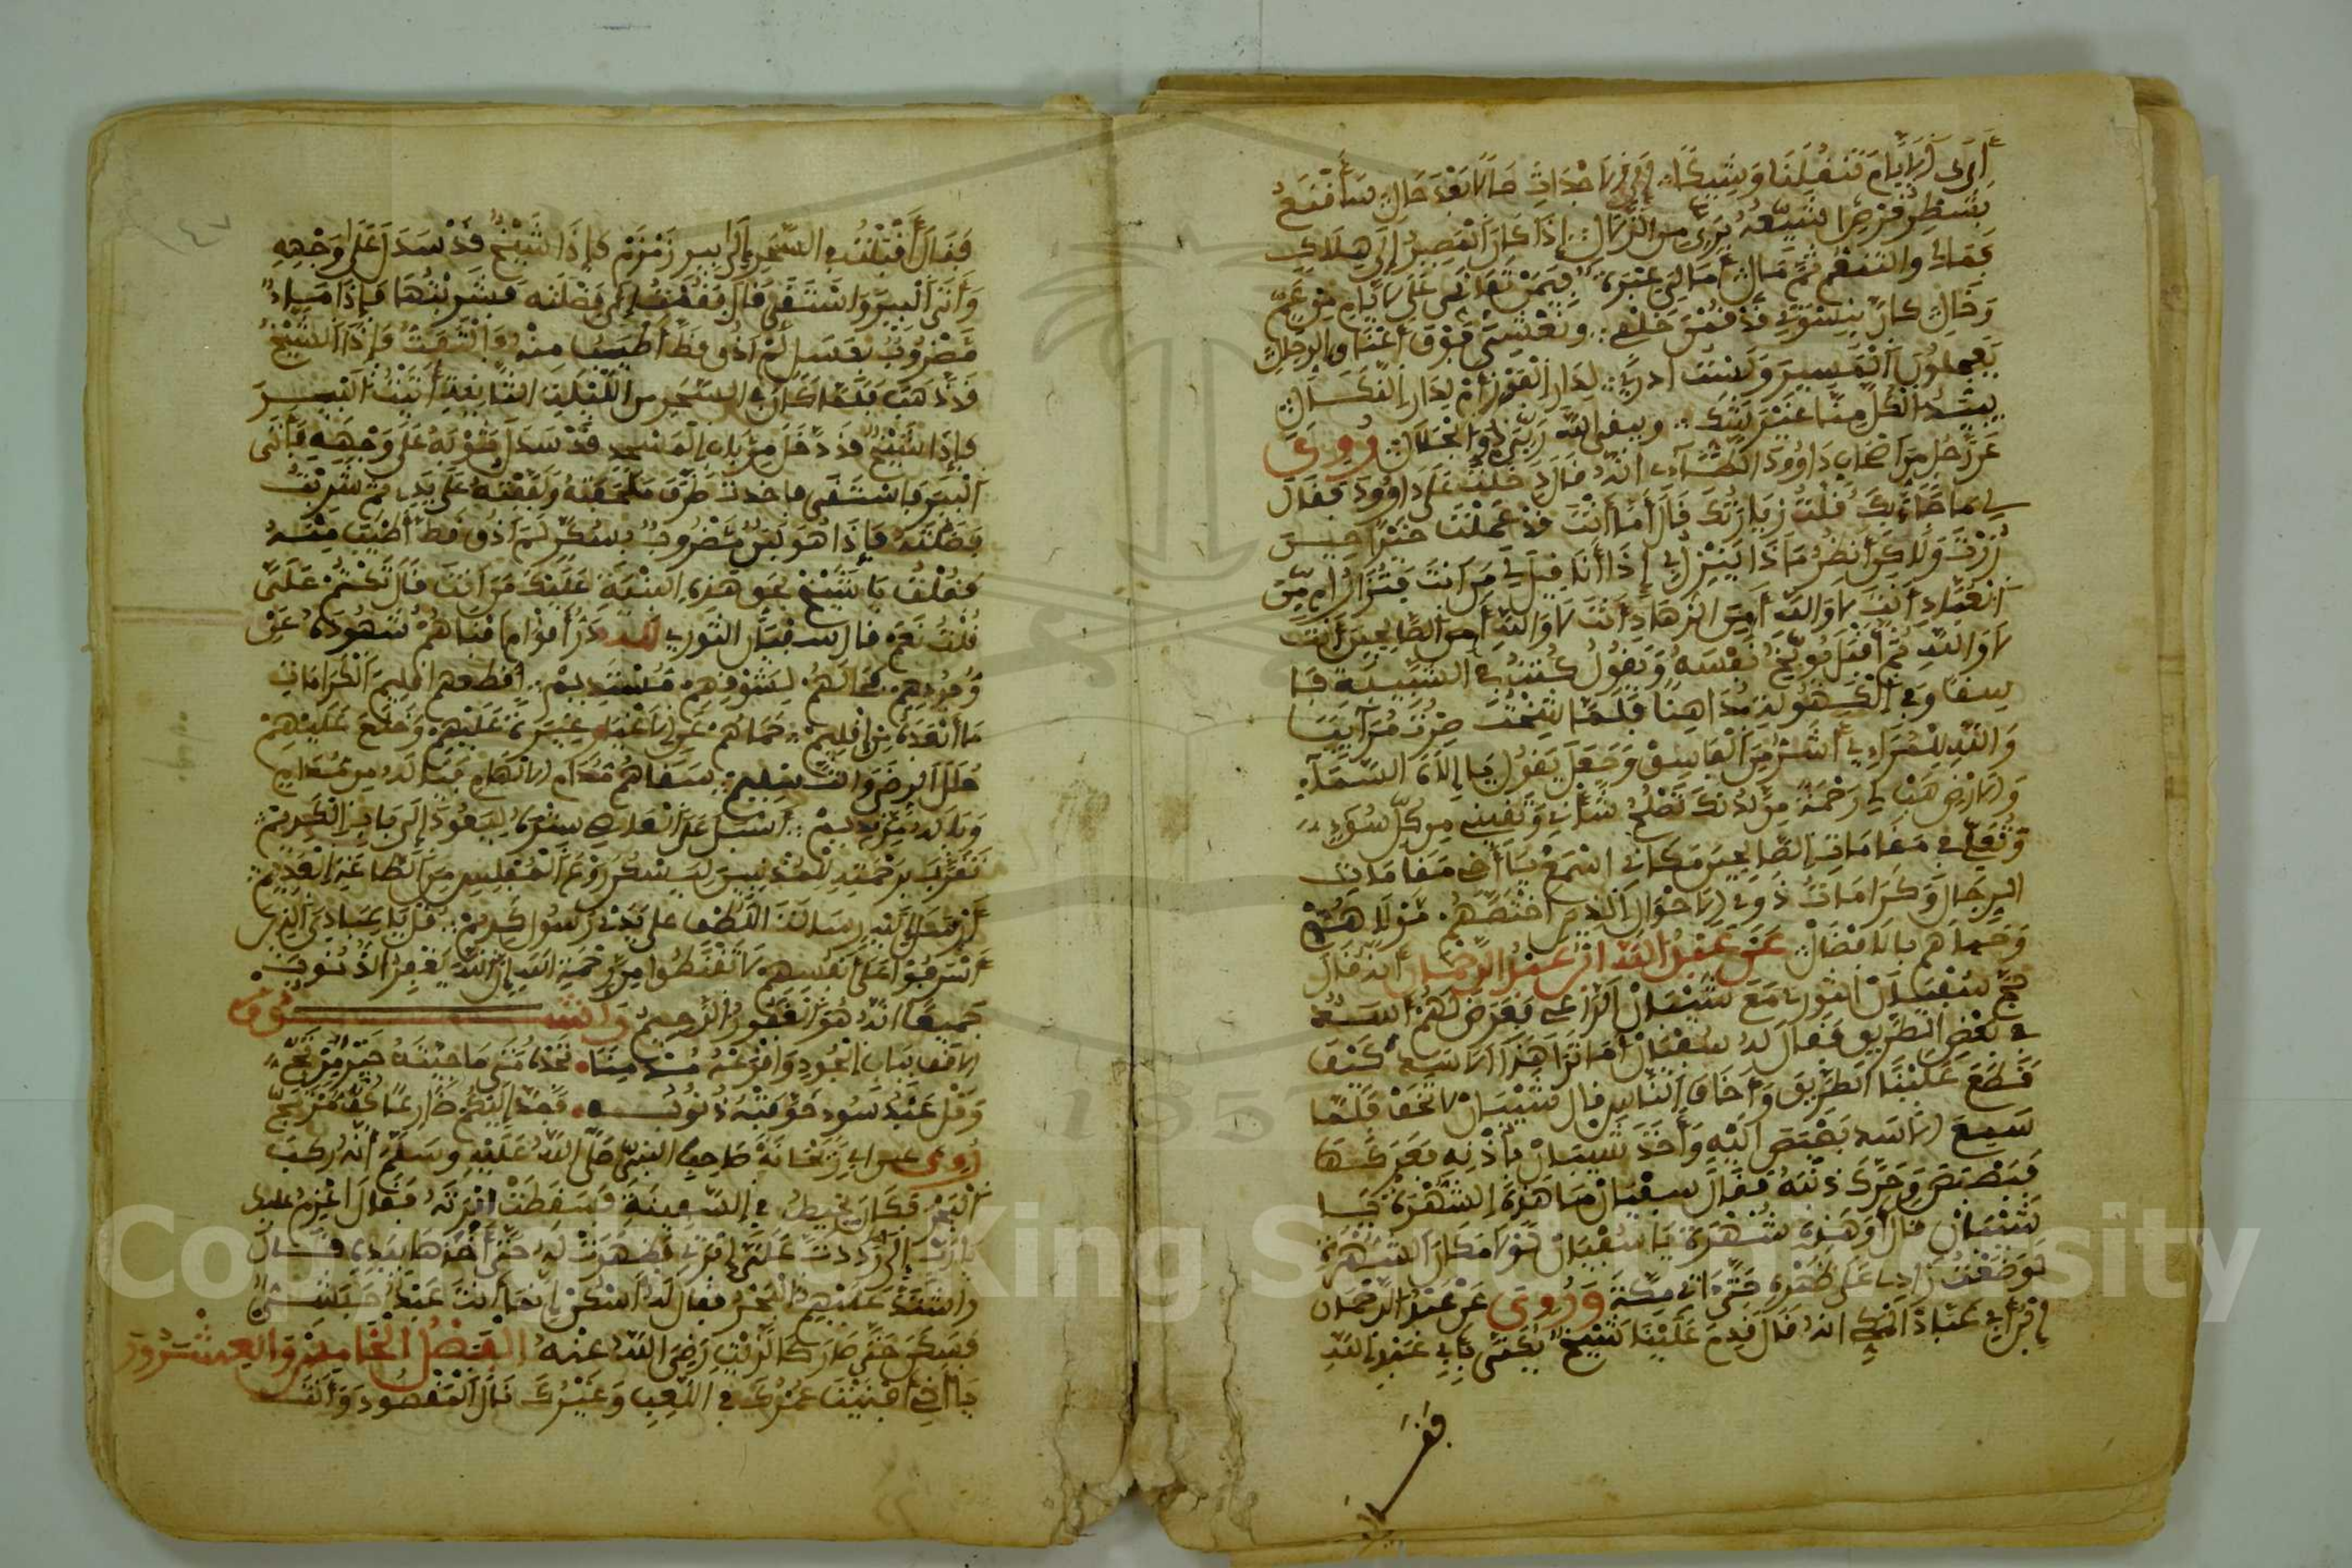 أرى الأيام تنقلنا وشيكا إلى الأجداث حالا بعد حال سأقنع
بشطر قرص أشبعه بريء من الزلال إذا كان المصير إلى هلاك
فمالي والتنعم ثم مالي أمالي عبرة فيمن تفانى على الأيام من عم
وخال كان بنسوتي قد قمن خلفي ونعشي فوق أعناق الرجال
يعجلون المسير ولست أدري لدار الفوز أم لدار النكال
يبيد الكل منا غير شك ويبقى الله ربي ذو الجلال روي
عن رجل من أصحاب داوود الطائي انه قال دخلت على داوود فقال
لي ما جاء بك قلت زيارتك قال أما أنت قد عملت خيرا حين
زرت ولاكن أنظر ماذا ينزل بي إذا أنا قيل لي من أنت فتزار أمن
العباد أنت لا والله أمن الزهاد أنت لا والله أمن الصالحين أنت
لا والله ثم أقبل يوبخ نفسه ويقول كنت في الشبيبة فا
سقا وفي الكهولة مداهنا فلما شخت صرت مرآئيا
والله للمرآءي أشر من الفاسق وجعل يقول يا إلاه السماء
والأرض هب لي رحمة من لدنك تصلح شأني وتقيني من كل سوء
وتعلي في مقامات الصالحين مكاني اسمع يا أخي مقامات
الرجال وكرامات ذوي الأحوال الذين اختصهم مولاهم
وحباهم بالافضال عن عبد الله ابن عبد الرحمان أنه قال
حج سفيان الثوري مع شيبان الراعي فعرض لهم أسد
في بعض الطريق فقال له سفيان أما ترا هذا الأسد كيف
قطع علينا الطريق وأخاف الناس قال شيبان لا تخف فلما
سمع الأسد بصبص اليه وأخذ شيبان بأذنه فعركها
فبصبص وحرك ذنبه فقال سفيان ما هذه الشهرة يا
شيبان قال أو هذه شهرة يا سفيان لولا مكان الشهرة
لوضعت زادي على ظهره حتى اتي مكة وروي عن عبد الرحمان
ابن أبي عباد المكي انه قال قدم علينا شيخ يكنى بأبي عبد الله
فقال
فقال أقبلت في السحر إلى بير زمزم فإذا شيخ قد سدل على وجهه
وأتى البير واستقى قال فقمت إلى فضلته فشربتها فإذا ماء
مضروب بعسل لم أذق قط أطيب منه والتفت فإذا الشيخ
قد ذهب فلما كان في السحر من الليلة الثانية أتيت البير
فإذا الشيخ قد دخل من باب المسجد قد سدل ثوبه على وجهه فأتى
البير فاستقى فاخذت طرف ملحفته ولففته على يدي ثم شربت
فضلته فإذا هو لبن مضروب بسكر لم أذق قط أطيب منه
فقلت يا شيخ بحق هذه البنية عليك من أنت قال تكتم علي
قلت نعم قال سفيان الثوري لله در أقوام أفناهم شهوده عن
وجودهم فحالهم لشوقهم مستديم أقطعهم إقليم الكرامات
ما أنفذه من إقليم حماهم عن الأغيار غيرة عليهم وخلع عليهم
حلل الرضى والتسليم سقاهم مدام الالهام فيا له من مدام
ويا له من نديم أسبل على العصاة ستره ليعودوا إلى باب الكريم
تعرف برحمته للمذنبين ليسكن روع المفلس من الطاعة العديم
أرسل إليه رسالة اللطف على يد رسول كريم قل يا عبادي الذين
أسرفوا على أنفسهم لا تقنطوا من رحمة الله إن الله يغفر الذنوب
جميعا انه هو الغفور الرحيم وانشدوا
لا قف بباب الجود واقرعه
وقل عبد سوء خوفته ذنوبه
روي عن أبي ريحانة صاحب النبي صلى الله عليه وسلم أنه ركب
البحر فكان يخيط في السفينة فسقطت ابرته فقال اعزم عليك
يا رب إلى رددت علي إبرتي فظهرت له حتى أخذها بيده قال
واشتد عليهم البحر فقال له اسكن إنما أنت عبد حبشي
فسكن حتى صار كالزيت رضي الله عنه الفصل الخامس والعشرون
يا أخي أفنيت عمرك في اللعب وغيرك نال المقصود وأنت